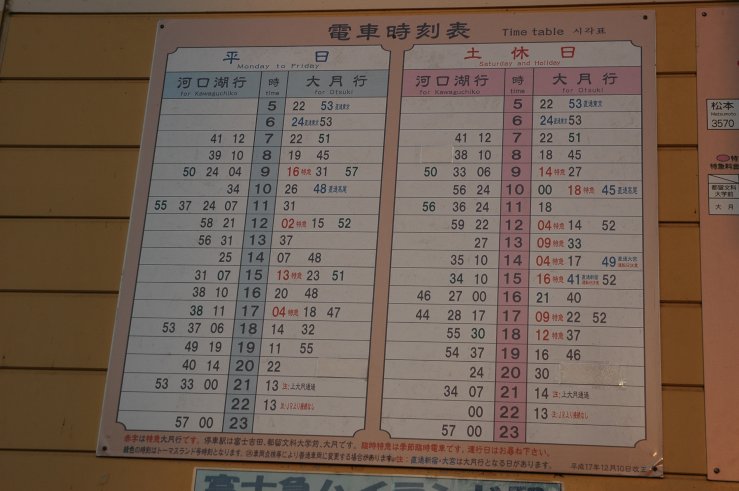 電車時刻表 Time table 시각표
平 日
Monday to Friday
河口湖行 時 大月行
for Kawaguchiko time for Otsuki
5 22 53直通東京
6 24直通東京53
41 12 7 22 51
39 10 8 19 45
50 24 04 9 16特急 31 57
34 10 26 48直通高尾
55 37 24 07 11 31
58 21 12 02特急 15 52
56 31 13 37
25 14 07 48
31 07 15 13特急 23 51
38 10 16 20 48
38 11 17 04特急 18 47
53 37 06 18 14 32
49 19 19 11 55
40 14 20 22
53 33 00 21 13 注:上大月通過
22 13 注:JR上り接続なし
57 00 23
土 休 日
Saturday and Holiday
河口湖行 時 大月行
for Kawaguchiko time for Otsuki
5 22 53直通東京
6 24直通東京53
41 12 7 22 51
38 10 8 18 45
50 33 06 9 14特急 27
56 24 10 00 18特急 45直通高尾
56 36 24 11 18
59 22 12 04特急 14 52
27 13 09特急 33
35 10 14 04特急 17 49直通大宮
34 10 15 16特急 41直通新宿 52
46 27 00 16 21 40
44 28 17 17 09特急 22 52
55 30 18 12特急 37
54 37 19 16 46
24 20 30
34 07 21 14 注:上大月通過
00 22 13 注:JR上り接続なし
57 00 23
赤字は特急大月行です。停車駅は富士吉田、都留文科大学前、大月です。臨時特急は季節臨時電車です。運行日はお尋ね下さい。
緑色の時刻はトーマスランド号時刻となります。
注:直通新宿・大宮は大月行となる日があります。
平成17年12月10日改正
富士急ハイランド駅
松本
Matsumoto
3570
特急料金
都留文科
大学前
大月